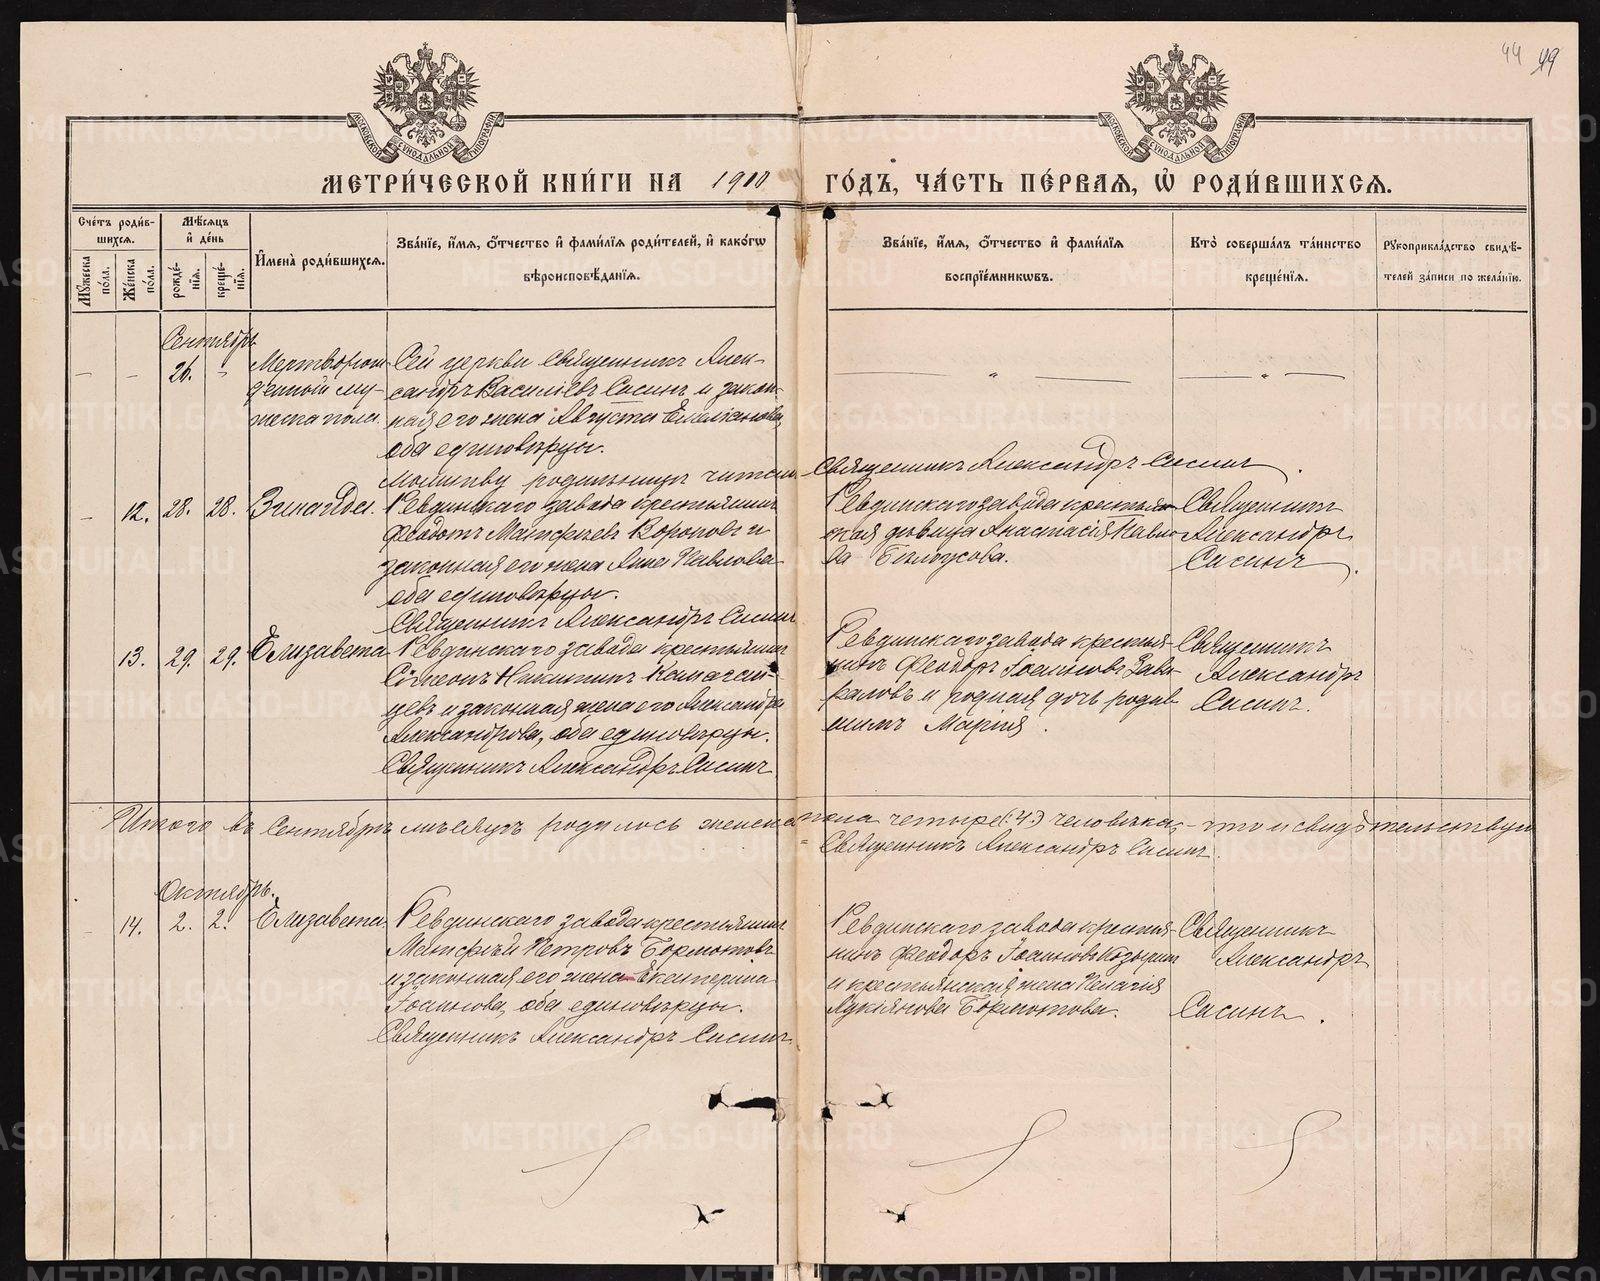 44 49
МЕТРИ́ЧЕСКОЙ КНИ́ГИ НА 1910 ГО́ДЪ, ЧА́СТЬ ПЕ́РВАЯ, Ѡ РОДИ́ВШИХСЯ.
МОСКОВСКОЙ СѴНОДАЛЬНОЙ ТИПОГРАФІИ
МОСКОВСКОЙ СѴНОДАЛЬНОЙ ТИПОГРАФІИ
Сче́тъ роди́в-
шихся.
Му́жеска по́ла.
Же́нска по́ла.
Мѣ́сяцъ
и҆ де́нь
рожде́-
нїя.
креще́-
нїя.
И҆мена̀ роди́вшихся.
Зва́нїе, и҆́мя, ѻ҆́тчество и҆ фами́лїя роди́телей, и҆ како́гѡ
вѣроисповѣ́данїя.
Зва́нїе, и҆́мя, ѻ҆́тчество и҆ фами́лїя
воспрїе́мникѡвъ.
Кто̀ соверша́лъ та́инство
креще́нїя.
Рукоприкла́дство свидѣ́-
телей за́писи по жела́нїю.
Сентябрь
— — 26. "
Мертворож-
денный му-
жеска пола.
Сей церкви Священникъ Алек-
сандръ Василіевъ Сасинъ и закон-
ная его жена Августа Емеліанова,
оба единовѣрцы.
Молитву родильницѣ читалъ Священникъ Александръ Сасинъ.
— 12. 28. 28. Зинаида.
Ревдинскаго завода крестьянинъ
Феодотъ Матфіевъ Воронов и
законная его жена Анна Павлова
оба единовѣрцы.
Священникъ Александръ Сасинъ
Ревдинскаго завода крестьян-
ская дѣвица Анастасія Павло-
ва
Священникъ
Александръ
Сасинъ.
13. 29. 29. Елизавета
Ревдинскаго завода крестьянинъ
Сѵмеонъ Никитинъ
цевъ и законная жена его Александра
Александрова, оба единовѣрцы.
Священникъ Александръ Сасинъ
Ревдинскаго завода крестья-
нинъ Феодоръ Іоанновъ
и родная дочь родив-
шимъ Марія.
Священникъ
Александръ
Сасинъ.
Итого въ Сентябрѣ мѣсяцѣ родилось женска пола четыре (:4:) человѣка, – что и свидѣтельствую
Священникъ Александръ Сасинъ.
Октябрь.
— 14. 2. 2. Елизавета.
Ревдинскаго завода крестьянинъ
Матфей Петровъ Бормотовъ
и законная его жена Екатерина
Іоаннова, оба единовѣрцы.
Священникъ Александръ Сасинъ
Ревдинскаго завода крестья-
нинъ Феодоръ Іоанновъ Козыринъ
и крестьянская жена Пелагія
Лукіянова Бормотова.
Священникъ
Александръ
Сасинъ.
METRIKI.GASO-URAL.RU